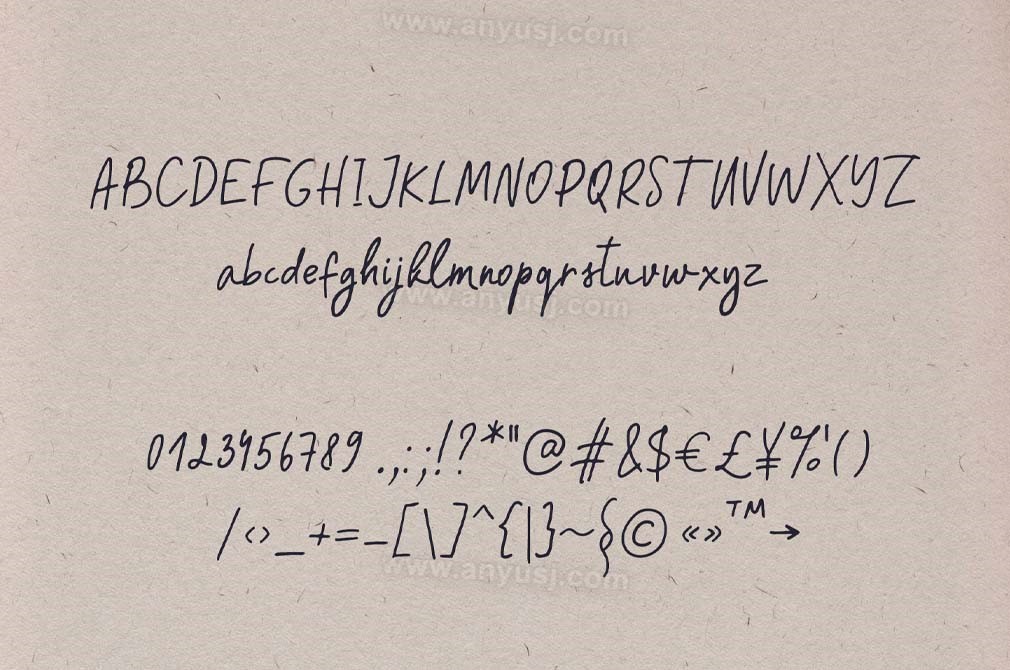 www.anyusj.com
ABCDEFGHIJKLMNOPQRSTUVWXYZ
abcdefghijklmnopqrstuvwxyz
www.anyusj.com
0123456789 .,:;!?*"@#&$€£¥%'()
/‹›_+=–[\]^{|}~§© «»™→
www.anyusj.com